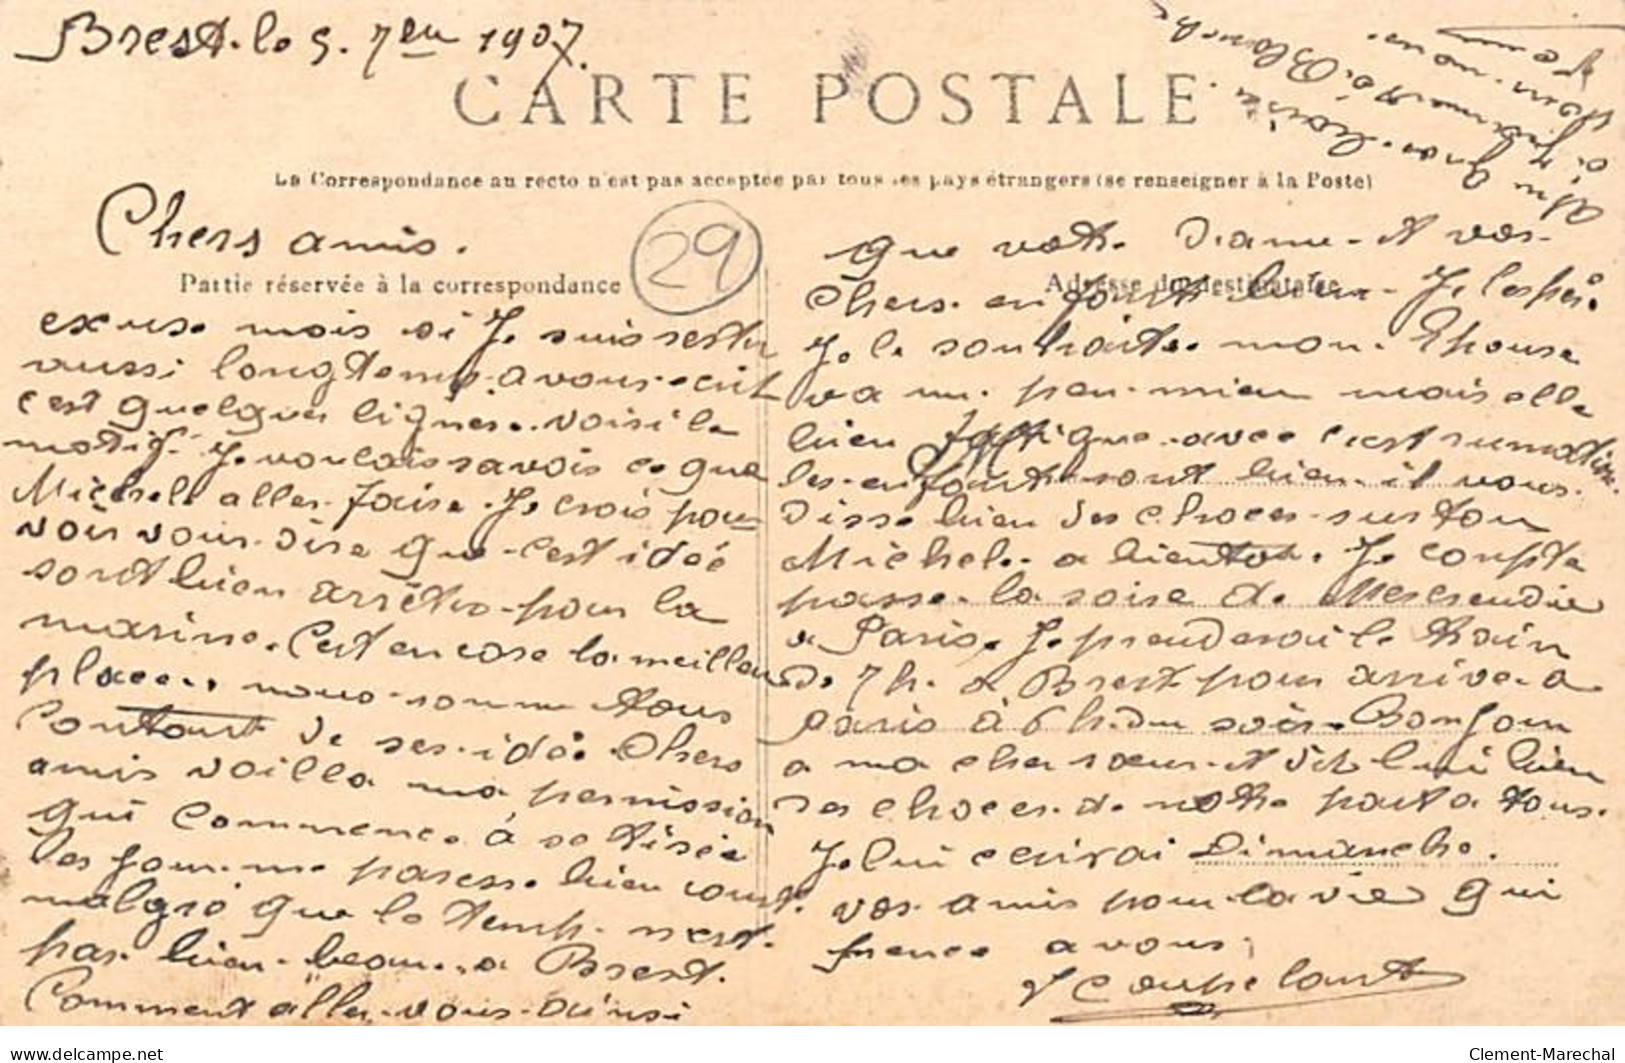 Brest. le 5. 7bre 1907.
CARTE POSTALE
La Correspondance au recto n'est pas acceptée par tous les pays étrangers (se renseigner à la Poste)
Chers amis.
29
Partie réservée à la correspondance
excuse mois si Je suis rester
aussi longtemps a vous ecrit
c'est quelques lignes. voisi le
motif. Je voulais savois ce que
Michel aller faire. Je crois pou
vois vous dire que c'est idéé
sont bien arrêter pour la
marine. C'est encore la meilleu
place.. nous somme tous
Contant de ses idéé. Chers
amis voilla ma permission
qui commence à se tirée
les jour me paresse bien court.
malgré que le temp n'est
pas bien beau a Brest.
Comment aller vous ainsi
que votre Dame et vos
Adresse du destinataire
Chers enfant bien Je l'espér.
Je le souhaite mon Epouse
va un peu mieu mais elle
bien fatigue avec c'est rumatisme.
les enfant sont bien il vous
Disse bien des choces surtou
Michel. a bientot. Je compte
passe la soire de Mercrendie
a Paris. Je prenderai le train
De 7h. a Brest pour arrive a
paris à 6h. du soir. Bonjour
a ma cher sœur et dit lui bien
des choces de notre part a tous.
Je lui ecrirai Dimanche.
vos amis pour la vie qui
pence a vous.
J Coupelant
Un gros
Blanche
femme
Clement-Marechal
www.delcampe.net